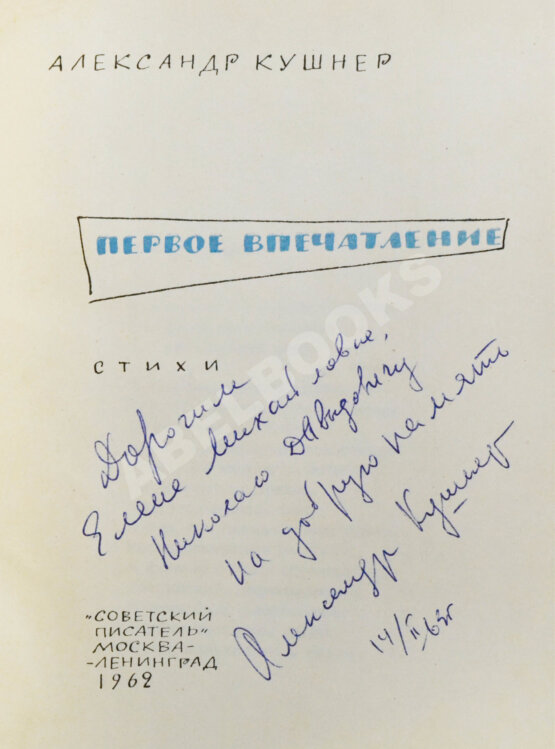 АЛЕКСАНДР КУШНЕР
ПЕРВОЕ ВПЕЧАТЛЕНИЕ
СТИХИ
Дорогим
Елене Михайловне,
Николаю Давыдовичу
на добрую память
Александр Кушнер
14/II 63г
"СОВЕТСКИЙ
ПИСАТЕЛЬ"
МОСКВА-
-ЛЕНИНГРАД
1962
ABELBOOKS